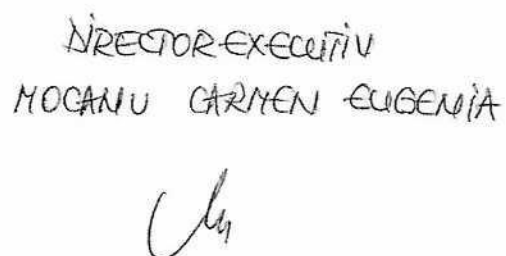 DIRECTOR EXECUTIV
MOCANU CARMEN EUGENIA